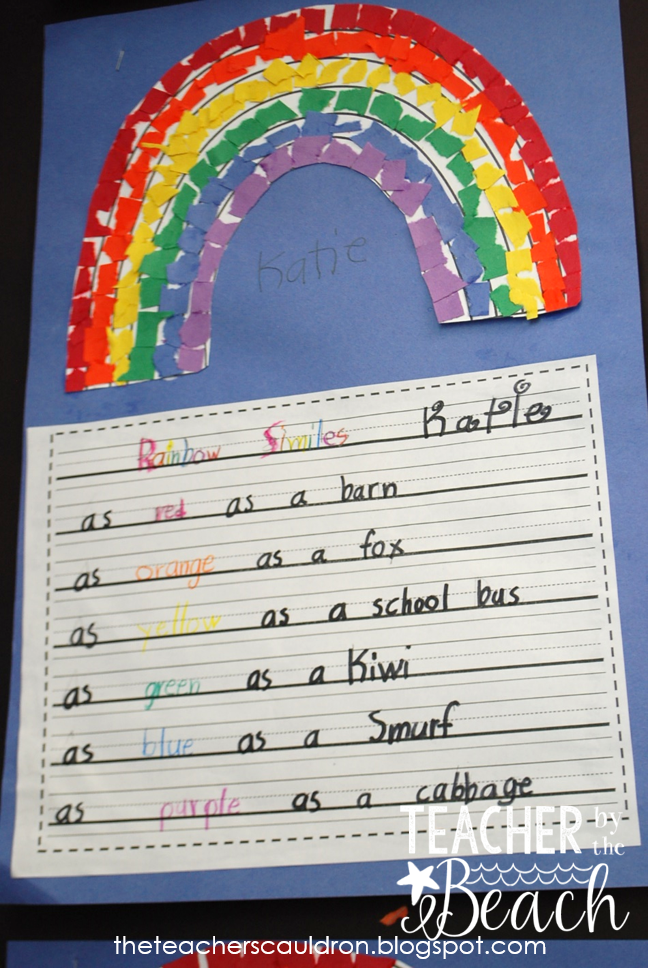 Katie
Rainbow Similes Katie
as red as a barn
as orange as a fox
as yellow as a school bus
as green as a Kiwi
as blue as a Smurf
as purple as a cabbage
TEACHER by the
Beach
theteacherscauldron.blogspot.com